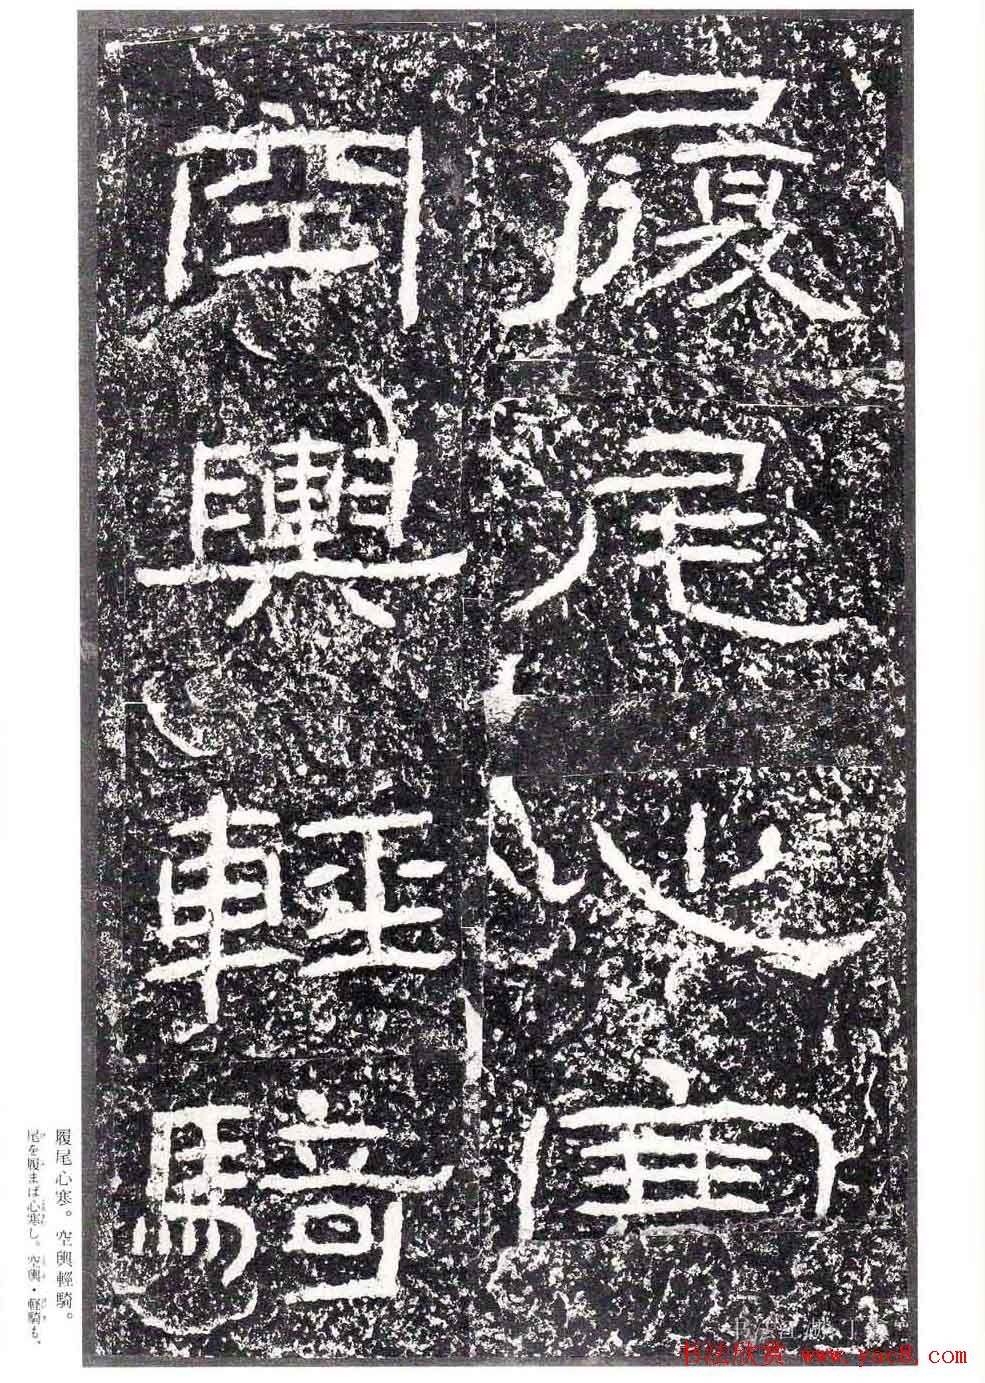 履尾心寒
空輿輕騎
履尾心寒。空輿輕騎。
尾を履まば心寒し。空輿・輕騎も、
书法欣赏 www.yac8.com